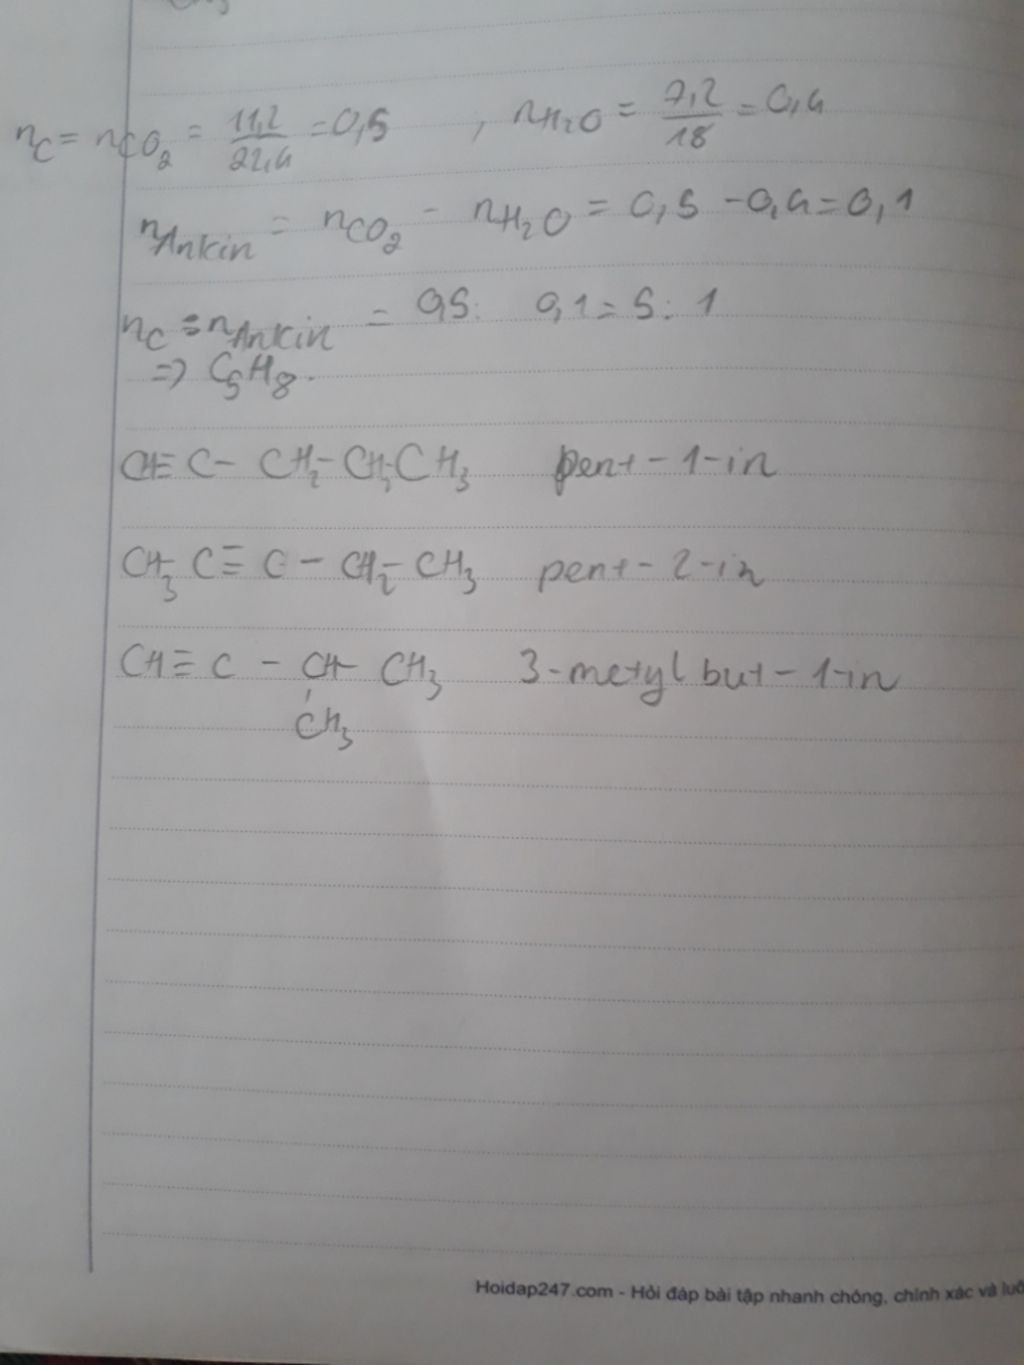 nC = nCO2 = 11,2/22,4 = 0,5 , nH2O = 7,2/18 = 0,4
nAnkin = nCO2 - nH2O = 0,5 - 0,4 = 0,1
nC : nAnkin = 0,5 : 0,1 = 5 : 1
=> C5H8.
CH≡C- CH2-CH2-CH3 pent-1-in
CH3-C≡C-CH2-CH3 pent-2-in
CH≡C-CH-CH3 3-metyl but-1-in
CH3
Hoidap247.com - Hỏi đáp bài tập nhanh chóng, chính xác và